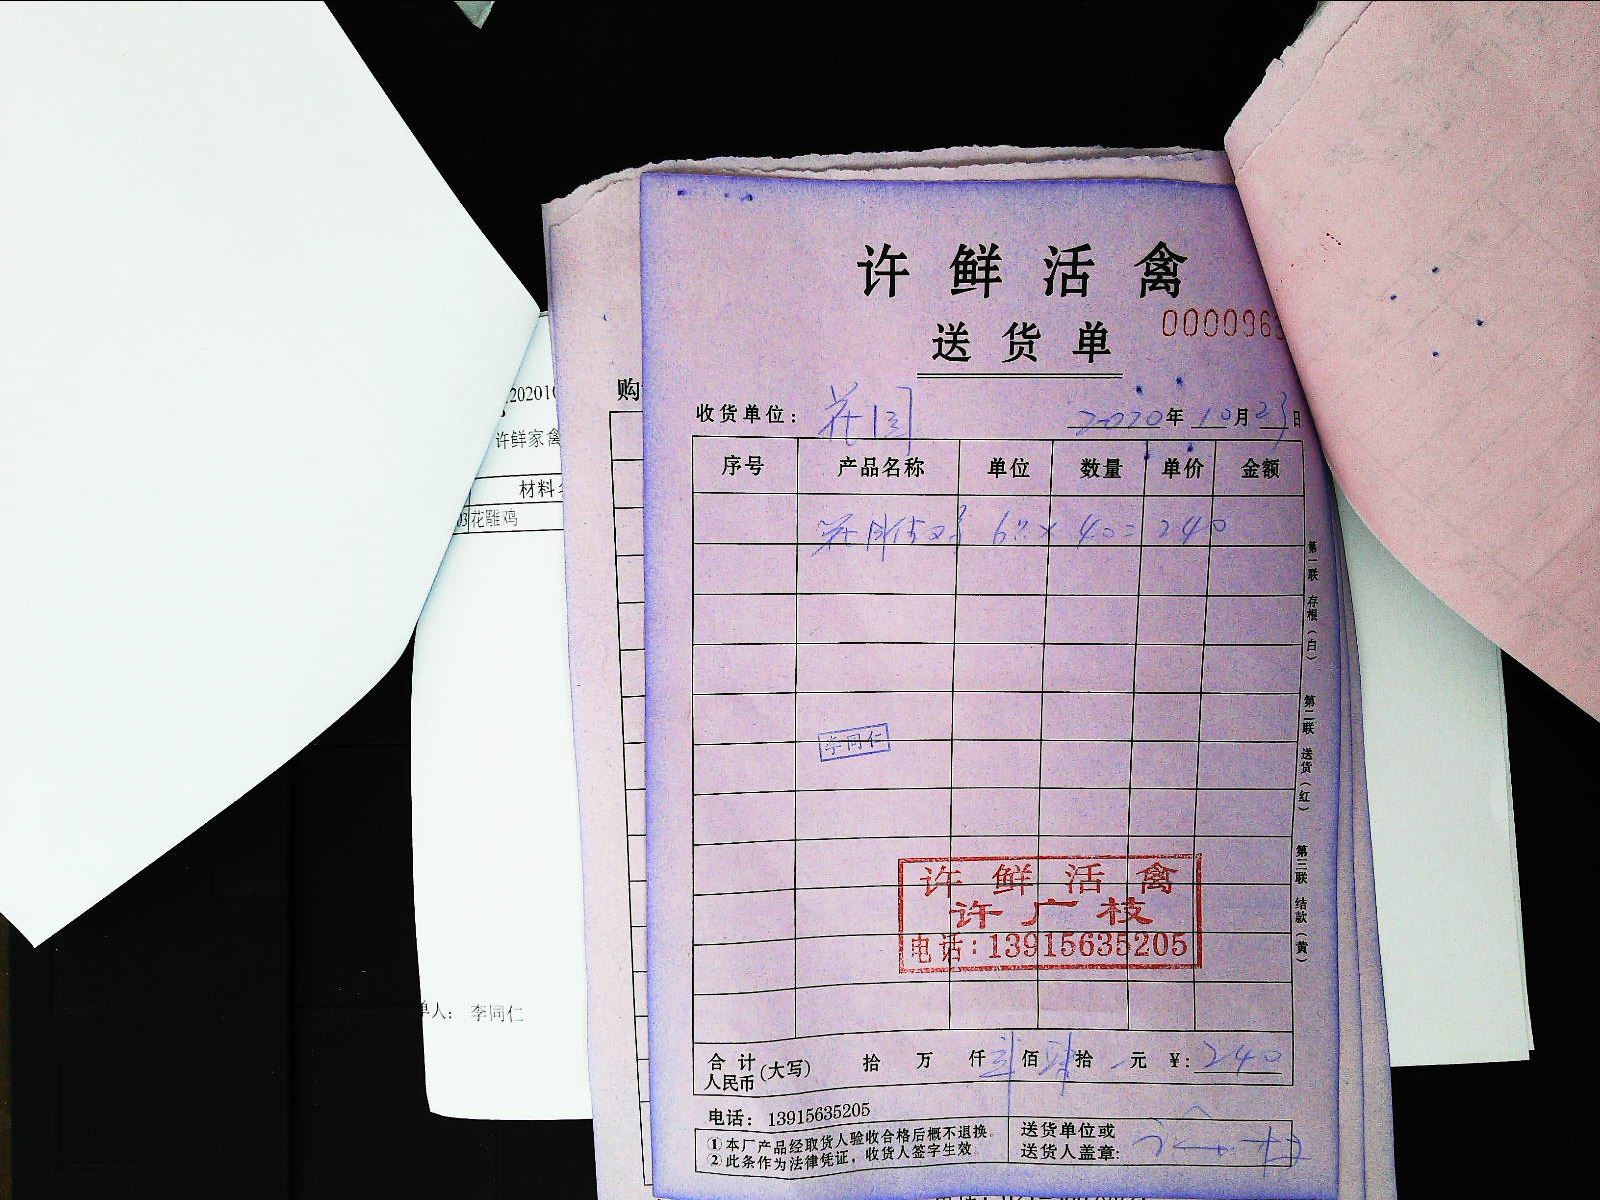 许鲜活禽
送货单
000096
收货单位： 花园 2020年10月23日
序号 产品名称 单位 数量 单价 金额
6只×40=240
李同仁
许鲜活禽
许广枝
电话：13915635205
合计人民币(大写) 拾 万 仟 贰佰 肆拾 元 ¥：240
电话：13915635205
①本厂产品经取货人验收合格后概不退换。
②此条作为法律凭证，收货人签字生效。
送货单位或
送货人盖章：
第一联 存根（白） 第二联 送货（红） 第三联 结款（黄）
购
202010
许鲜家禽
材料
03 花雕鸡
单人： 李同仁